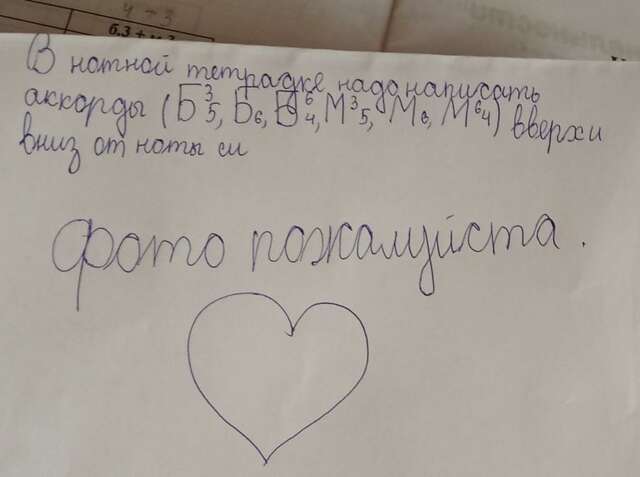 4 - 3
В нотной тетрадке надо написать
аккорды (Б³₅, Б₆, Б⁶₄, М³₅, М₆, М⁶₄) вверх и
вниз от ноты си
фото пожалуйста.